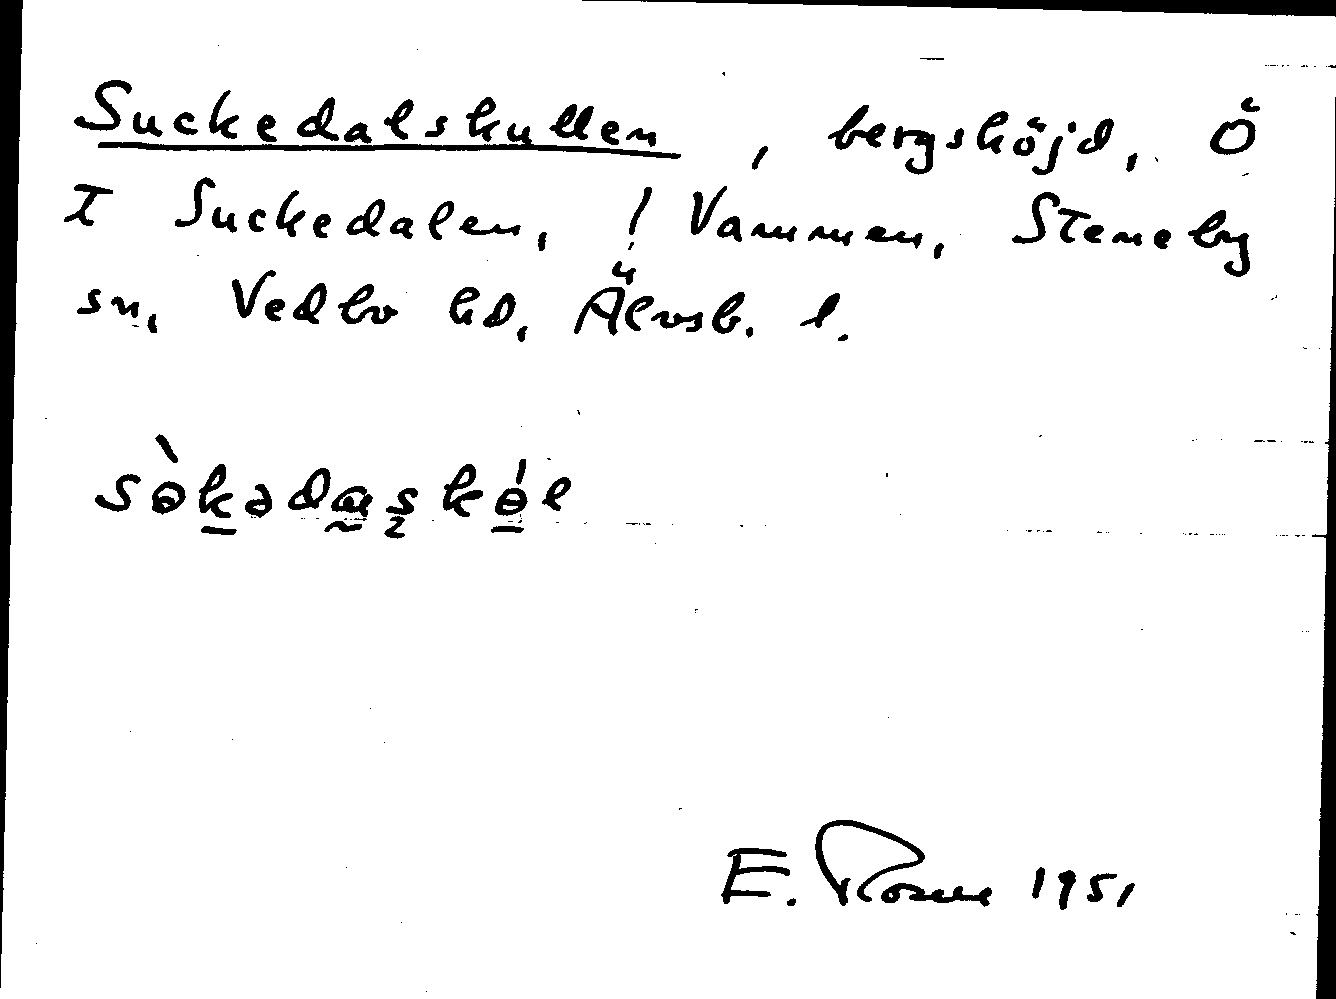 Suckedalskullen, bergshöjd, Ö
I Suckedalen, ! Vammen, Steneby
sn, Vedbo hd, Älvsb. l.
E. 1951